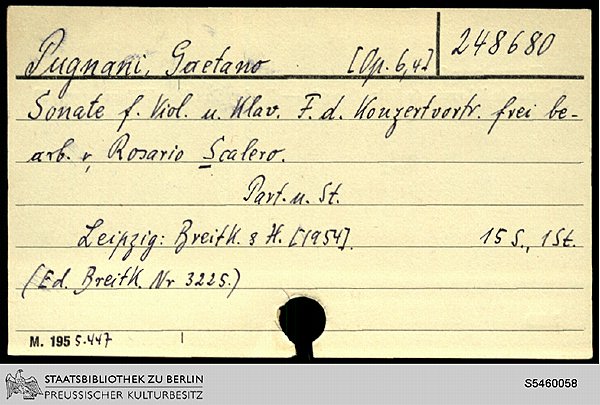 Pugnani, Gaetano [Op. 6,4] 248680
Sonate f. Viol. u. Klav. F. d. Konzertvortr. frei be-
arb. v. Rosario Scalero.
Part. u. St.
Leipzig: Breitk. & H. [1954]. 15 S., 1 St.
(Ed. Breitk. Nr 3225.)
M. 195 5.447
STAATSBIBLIOTHEK ZU BERLIN
PREUSSISCHER KULTURBESITZ
S5460058